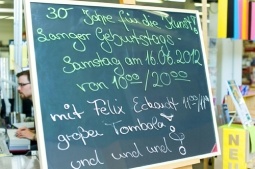 30 Jahre für die Kunst!
Langer Geburtstags-
Samstag am 16.06.2012
von 10⁰⁰/20⁰⁰
mit Felix
großer Tombola
und und und!
NEU